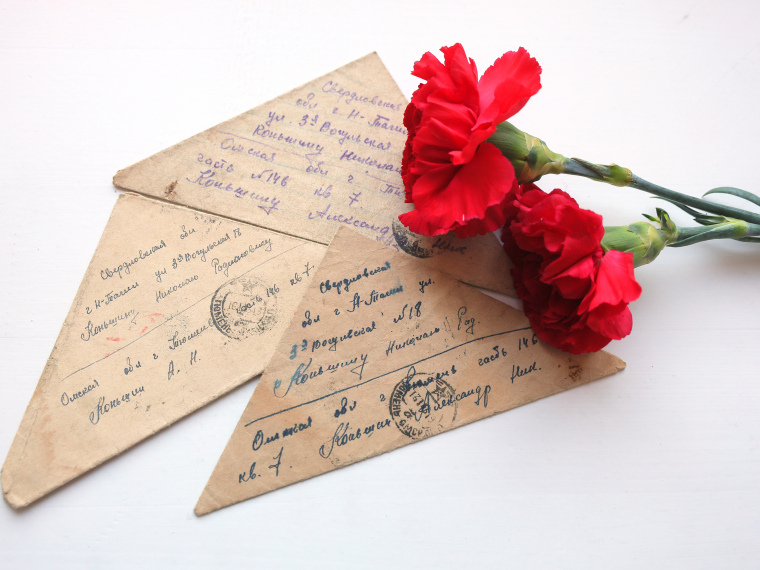 Свердловская
обл г. Н-Тагил
ул. 3я Вогульская
Коньшину Николаю
Омская обл г.
часть №146 кв 7.
Коньшину Александр Ник.
Свердловская обл
г. Н-Тагил ул 3я Вогульская 18
Коньшину Николаю Родионовичу
Омская обл г Тюмень часть 146 кв. 7
Коньшин А. Н.
Свердловская
обл г Н-Тагил ул.
3я Вогульская №18
Коньшину Николаю Род.
Омская обл г. Тюмень часть 146
кв. 7. Коньшин Александр Ник.